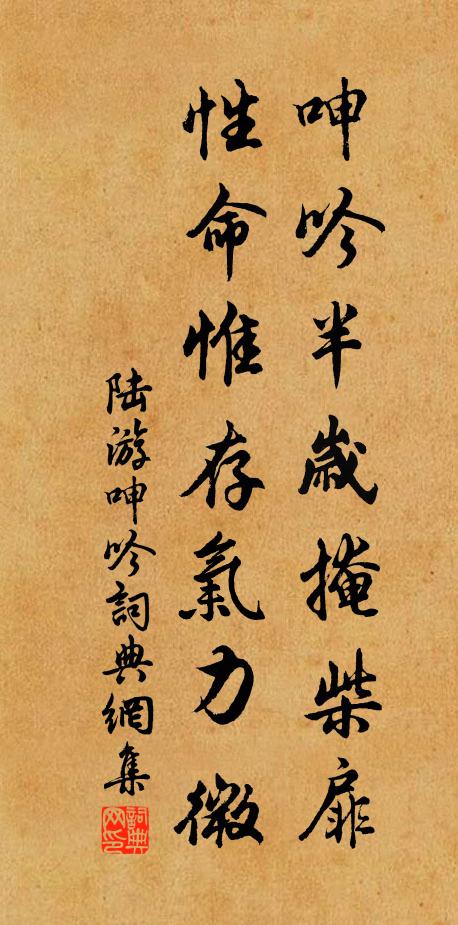 呻吟半歲掩柴扉
性命惟存氣力微
陆游呻吟詞典網集
詞典网印